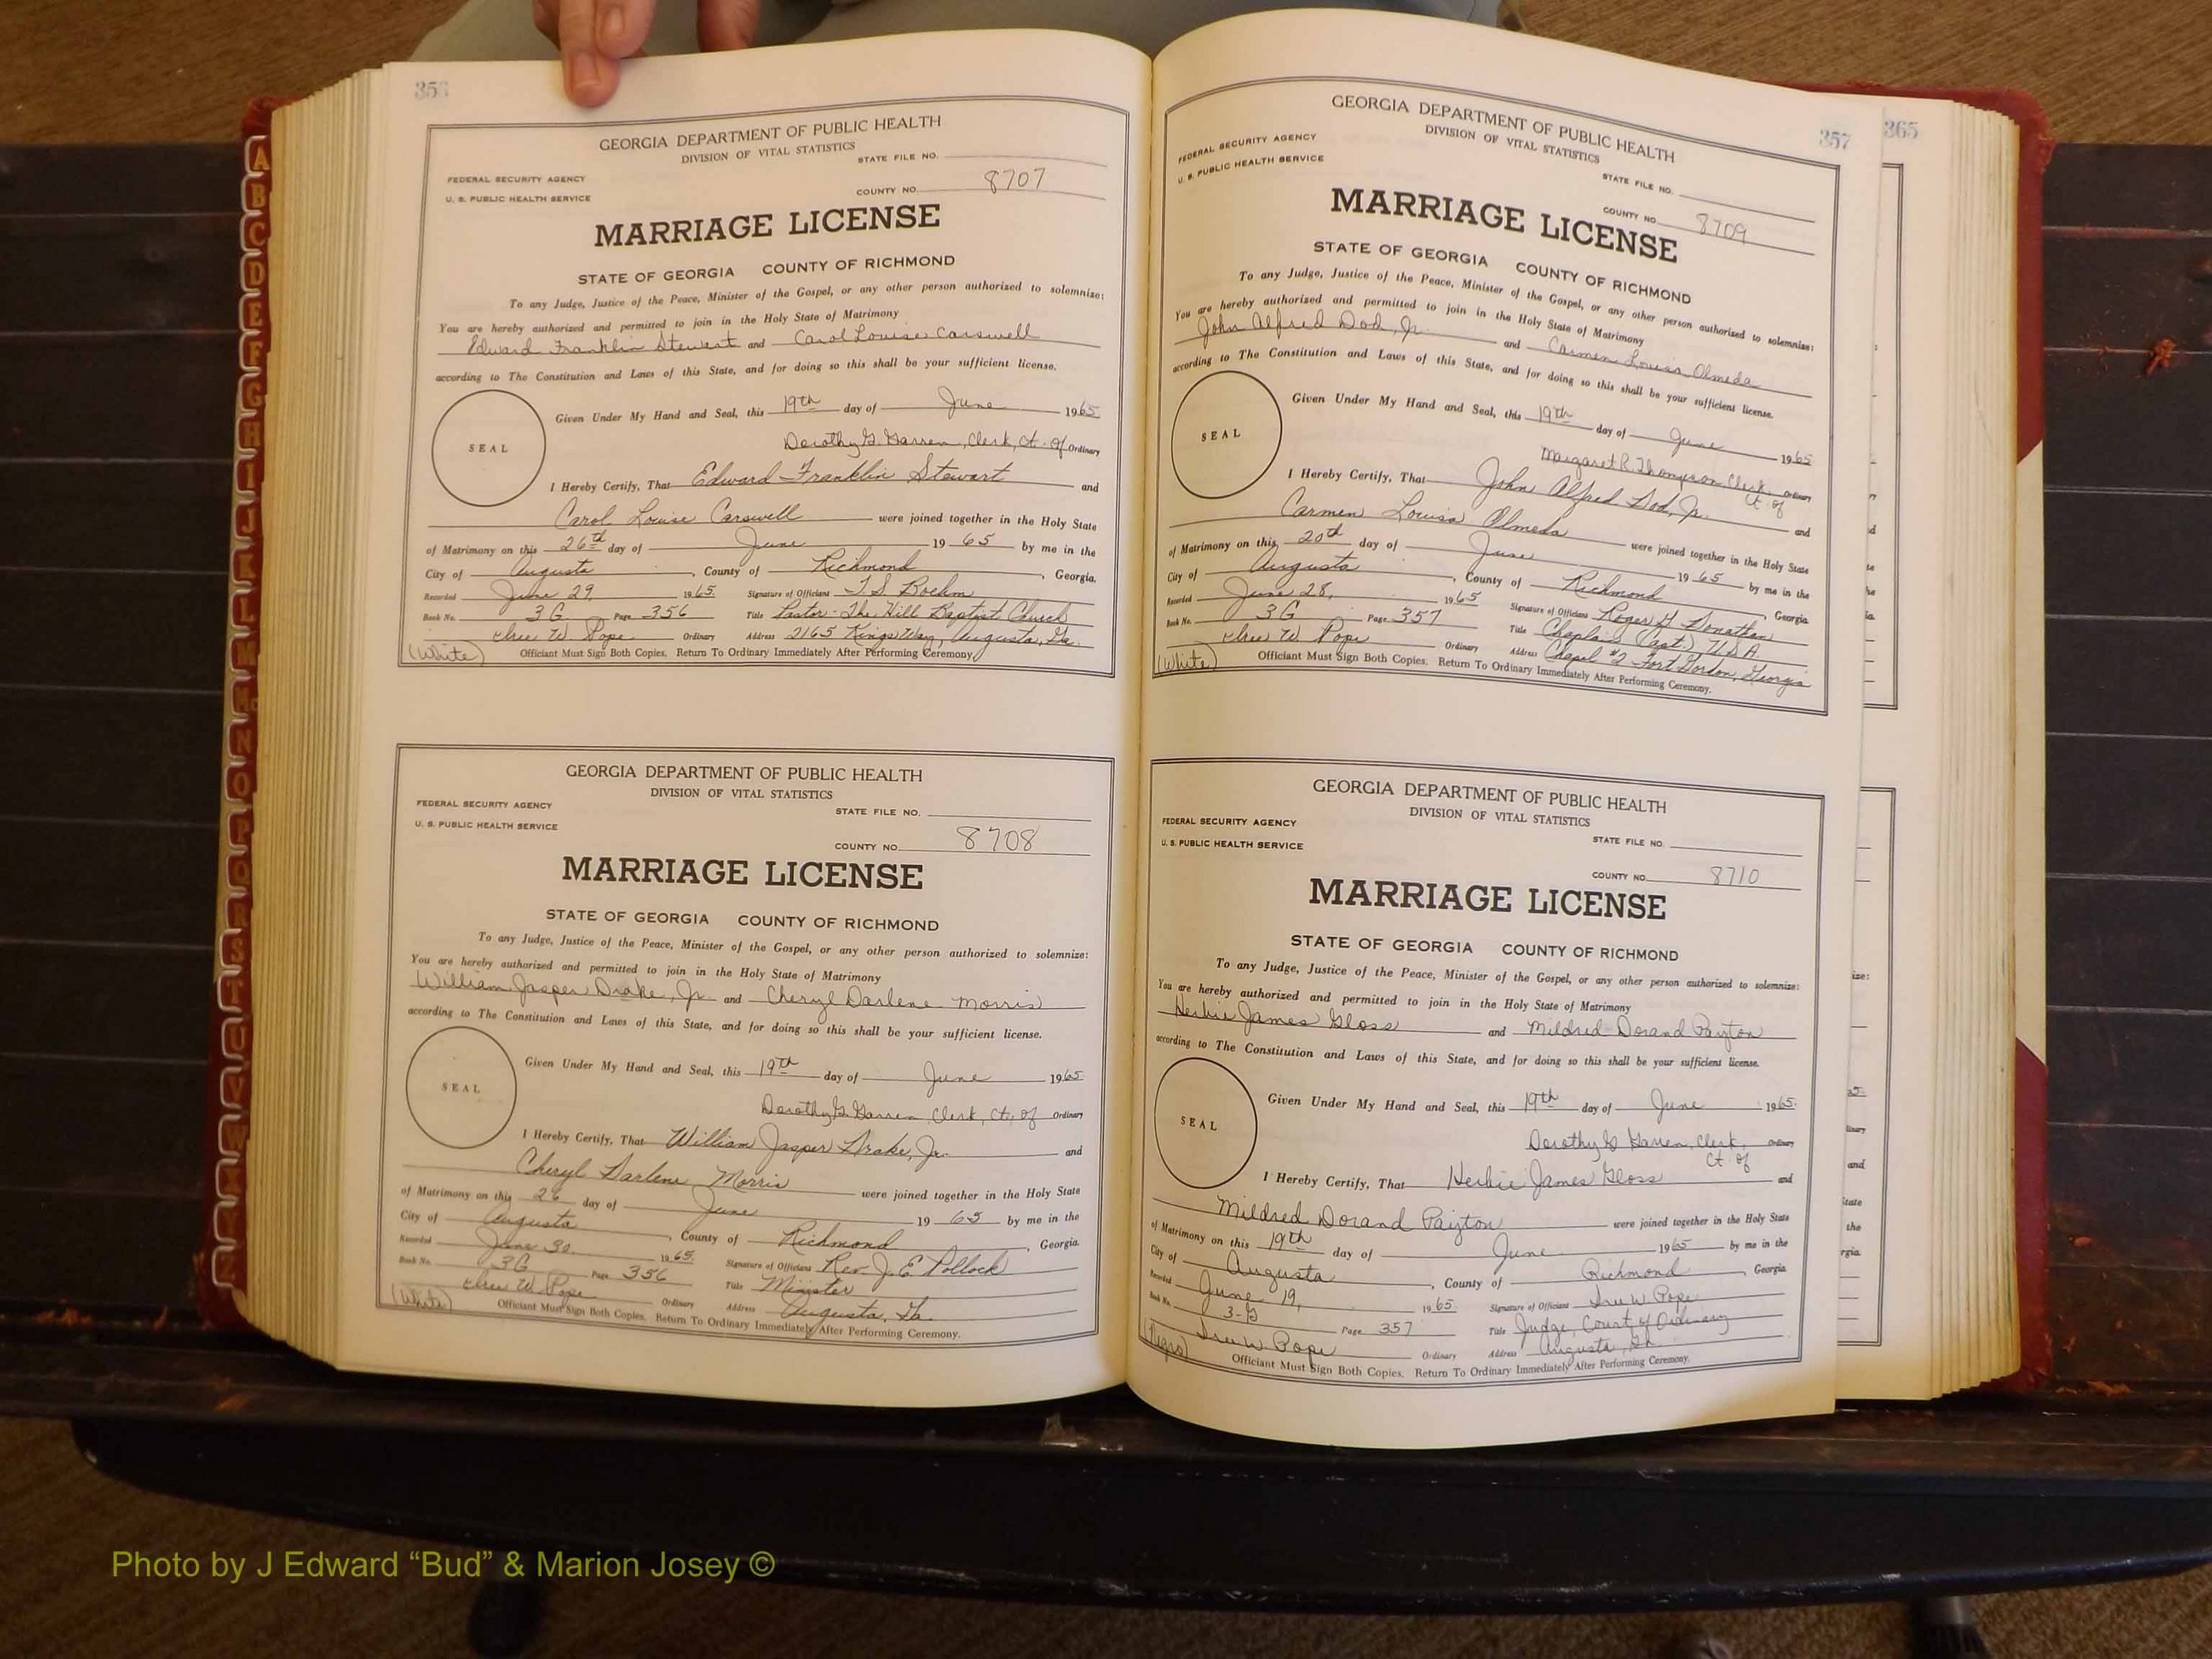 356
GEORGIA DEPARTMENT OF PUBLIC HEALTH
DIVISION OF VITAL STATISTICS
STATE FILE NO.
FEDERAL SECURITY AGENCY
U. S. PUBLIC HEALTH SERVICE
COUNTY NO. 8707
MARRIAGE LICENSE
STATE OF GEORGIA COUNTY OF RICHMOND
To any Judge, Justice of the Peace, Minister of the Gospel, or any other person authorized to solemnize:
You are hereby authorized and permitted to join in the Holy State of Matrimony
Edward Franklin Stewart and Carol Louise Carswell
according to The Constitution and Laws of this State, and for doing so this shall be your sufficient license.
SEAL
Given Under My Hand and Seal, this 19th day of June 1965
Dorothy G. Warren, Clerk, Ct. of Ordinary
I Hereby Certify, That Edward Franklin Stewart and
Carol Louise Carswell were joined together in the Holy State
of Matrimony on this 26th day of June 19 65 by me in the
City of Augusta, County of Richmond, Georgia.
Recorded June 29, 1965. Signature of Officiant T. S. Boehm
Book No. 3G Page 356 Title Pastor-The Hill Baptist Church
W. Pope Ordinary Address 2165 Kings Way, Augusta, Ga.
(White) Officiant Must Sign Both Copies. Return To Ordinary Immediately After Performing Ceremony.
GEORGIA DEPARTMENT OF PUBLIC HEALTH
DIVISION OF VITAL STATISTICS
FEDERAL SECURITY AGENCY
STATE FILE NO.
U. S. PUBLIC HEALTH SERVICE
COUNTY NO. 8708
MARRIAGE LICENSE
STATE OF GEORGIA COUNTY OF RICHMOND
To any Judge, Justice of the Peace, Minister of the Gospel, or any other person authorized to solemnize:
You are hereby authorized and permitted to join in the Holy State of Matrimony
William Jasper Drake, Jr. and Cheryl Darlene Morris
according to The Constitution and Laws of this State, and for doing so this shall be your sufficient license.
SEAL
Given Under My Hand and Seal, this 19th day of June 1965
Dorothy G. Warren Clerk, Ct. of Ordinary
I Hereby Certify, That William Jasper Drake, Jr. and
Cheryl Darlene Morris were joined together in the Holy State
of Matrimony on this 26 day of June 19 65 by me in the
City of Augusta, County of Richmond, Georgia.
Recorded June 30 1965. Signature of Officiant Rev. J. E. Pollock
Book No. 3G Page 356 Title Minister
W. Pope Ordinary Address Augusta, Ga.
(White) Officiant Must Sign Both Copies. Return To Ordinary Immediately After Performing Ceremony.
357
GEORGIA DEPARTMENT OF PUBLIC HEALTH
DIVISION OF VITAL STATISTICS
FEDERAL SECURITY AGENCY
U. S. PUBLIC HEALTH SERVICE
STATE FILE NO.
COUNTY NO. 8709
MARRIAGE LICENSE
STATE OF GEORGIA COUNTY OF RICHMOND
To any Judge, Justice of the Peace, Minister of the Gospel, or any other person authorized to solemnize:
You are hereby authorized and permitted to join in the Holy State of Matrimony
John Alfred Dod, Jr. and Carmen Louisa Olmeda
according to The Constitution and Laws of this State, and for doing so this shall be your sufficient license.
SEAL
Given Under My Hand and Seal, this 19th day of June 1965
Margaret R. Thompson, Clerk, Ct. of Ordinary
I Hereby Certify, That John Alfred Dod, Jr. and
Carmen Louisa Olmeda were joined together in the Holy State
of Matrimony on this 20th day of June 19 65 by me in the
City of Augusta, County of Richmond Georgia
Recorded June 28, 1965 Signature of Officiant Roger G Donathan
Book No. 3G Page 357 Title Chaplain (Capt.) USA
W. Pope Ordinary Address Chapel #2 Fort Gordon, Georgia
(White) Officiant Must Sign Both Copies. Return To Ordinary Immediately After Performing Ceremony.
GEORGIA DEPARTMENT OF PUBLIC HEALTH
DIVISION OF VITAL STATISTICS
FEDERAL SECURITY AGENCY
STATE FILE NO.
U. S. PUBLIC HEALTH SERVICE
COUNTY NO. 8710
MARRIAGE LICENSE
STATE OF GEORGIA COUNTY OF RICHMOND
To any Judge, Justice of the Peace, Minister of the Gospel, or any other person authorized to solemnize:
You are hereby authorized and permitted to join in the Holy State of Matrimony
Herbie James Gloss and Mildred Dorand Payton
according to The Constitution and Laws of this State, and for doing so this shall be your sufficient license.
SEAL
Given Under My Hand and Seal, this 19th day of June 1965
Dorothy G Warren, Clerk, Ct. of Ordinary
I Hereby Certify, That Herbie James Gloss and
Mildred Dorand Payton were joined together in the Holy State
of Matrimony on this 19th day of June 1965 by me in the
City of Augusta, County of Richmond Georgia
Recorded June 19, 1965. Signature of Officiant W. Pope
Book No. 3-G Page 357 Title Judge, Court of Ordinary
W. Pope Ordinary Address Augusta, Ga.
(Negro) Officiant Must Sign Both Copies. Return To Ordinary Immediately After Performing Ceremony.
365
A
B
C
D
E
F
G
H
I
J
K
L
M
Mc
N
O
P
Q
R
S
T
U
V
W
X
Y
Z
Photo by J Edward “Bud” & Marion Josey ©